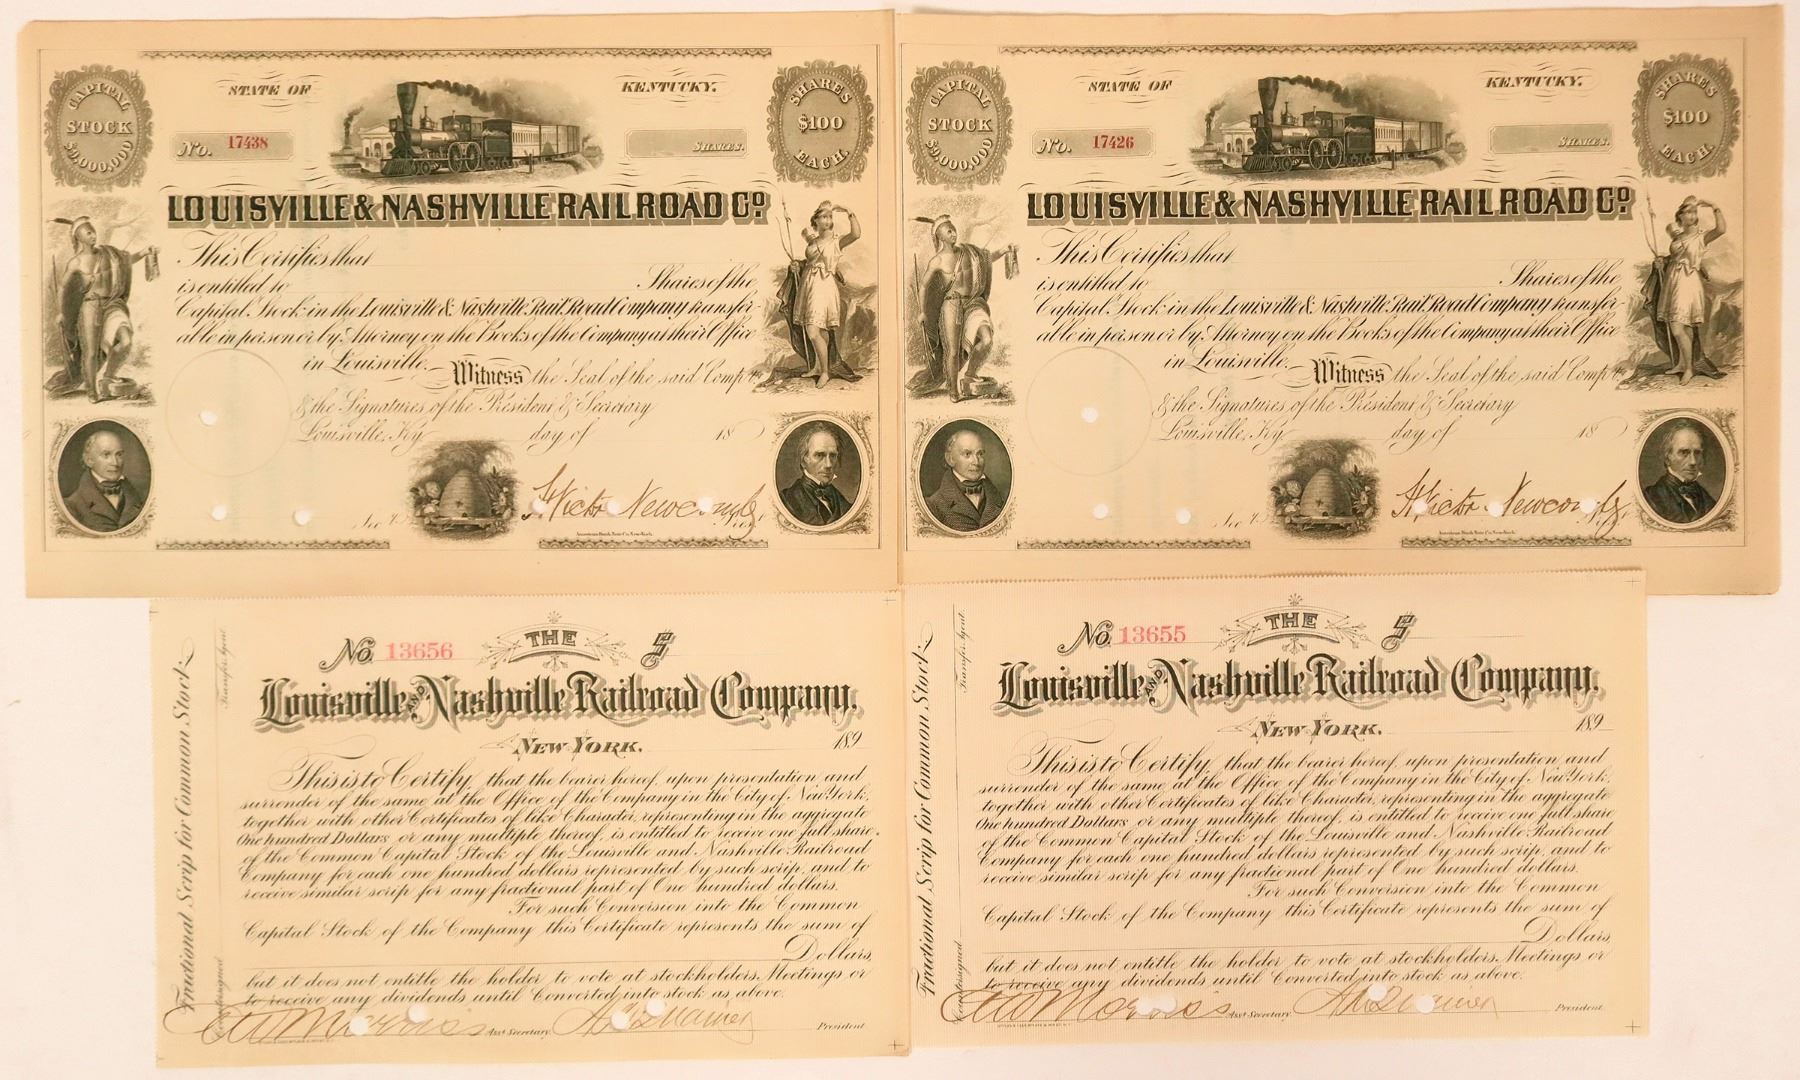 CAPITAL STOCK $9,000,000
STATE OF KENTUCKY.
SHARES $100 EACH.
No. 17438 SHARES.
LOUISVILLE & NASHVILLE RAIL ROAD CO.
This Certifies that
is entitled to Shares of the
Capital Stock in the Louisville & Nashville Rail Road Company transfer-
able in person or by Attorney on the Books of the Company at their Office
in Louisville. Witness the Seal of the said Comp
& the Signatures of the President & Secretary
Louisville, Ky day of 18
Sec'y H Victor Newcomb
American Bank Note Co. New-York.
CAPITAL STOCK $9,000,000
STATE OF KENTUCKY.
SHARES $100 EACH.
No. 17426 SHARES.
LOUISVILLE & NASHVILLE RAIL ROAD CO.
This Certifies that
is entitled to Shares of the
Capital Stock in the Louisville & Nashville Rail Road Company transfer-
able in person or by Attorney on the Books of the Company at their Office
in Louisville. Witness the Seal of the said Comp
& the Signatures of the President & Secretary
Louisville, Ky day of 18
Sec'y H Victor Newcomb
American Bank Note Co. New-York.
Fractional Scrip for Common Stock
Transfer Agent.
Countersigned
No. 13656 THE $
Louisville AND Nashville Railroad Company.
NEW YORK. 189
This is to Certify that the bearer hereof, upon presentation and
surrender of the same, at the Office of the Company in the City of New York,
together with other Certificates of like Character, representing in the aggregate
One hundred Dollars or any multiple thereof, is entitled to receive one full share
of the Common Capital Stock of the Louisville and Nashville Railroad
Company for each one hundred dollars represented by such scrip, and to
receive similar scrip for any fractional part of One hundred dollars.
For such Conversion into the Common
Capital Stock of the Company this Certificate represents the sum of
Dollars,
but it does not entitle the holder to vote at stockholders Meetings or
to receive any dividends until Converted into stock as above.
Asst Secretary. President
Fractional Scrip for Common Stock
Transfer Agent.
Countersigned
No. 13655 THE $
Louisville AND Nashville Railroad Company.
NEW YORK. 189
This is to Certify that the bearer hereof, upon presentation and
surrender of the same, at the Office of the Company in the City of New York,
together with other Certificates of like Character, representing in the aggregate
One hundred Dollars or any multiple thereof, is entitled to receive one full share
of the Common Capital Stock of the Louisville and Nashville Railroad
Company for each one hundred dollars represented by such scrip, and to
receive similar scrip for any fractional part of One hundred dollars.
For such Conversion into the Common
Capital Stock of the Company this Certificate represents the sum of
Dollars,
but it does not entitle the holder to vote at stockholders Meetings or
to receive any dividends until Converted into stock as above.
Asst Secretary. President